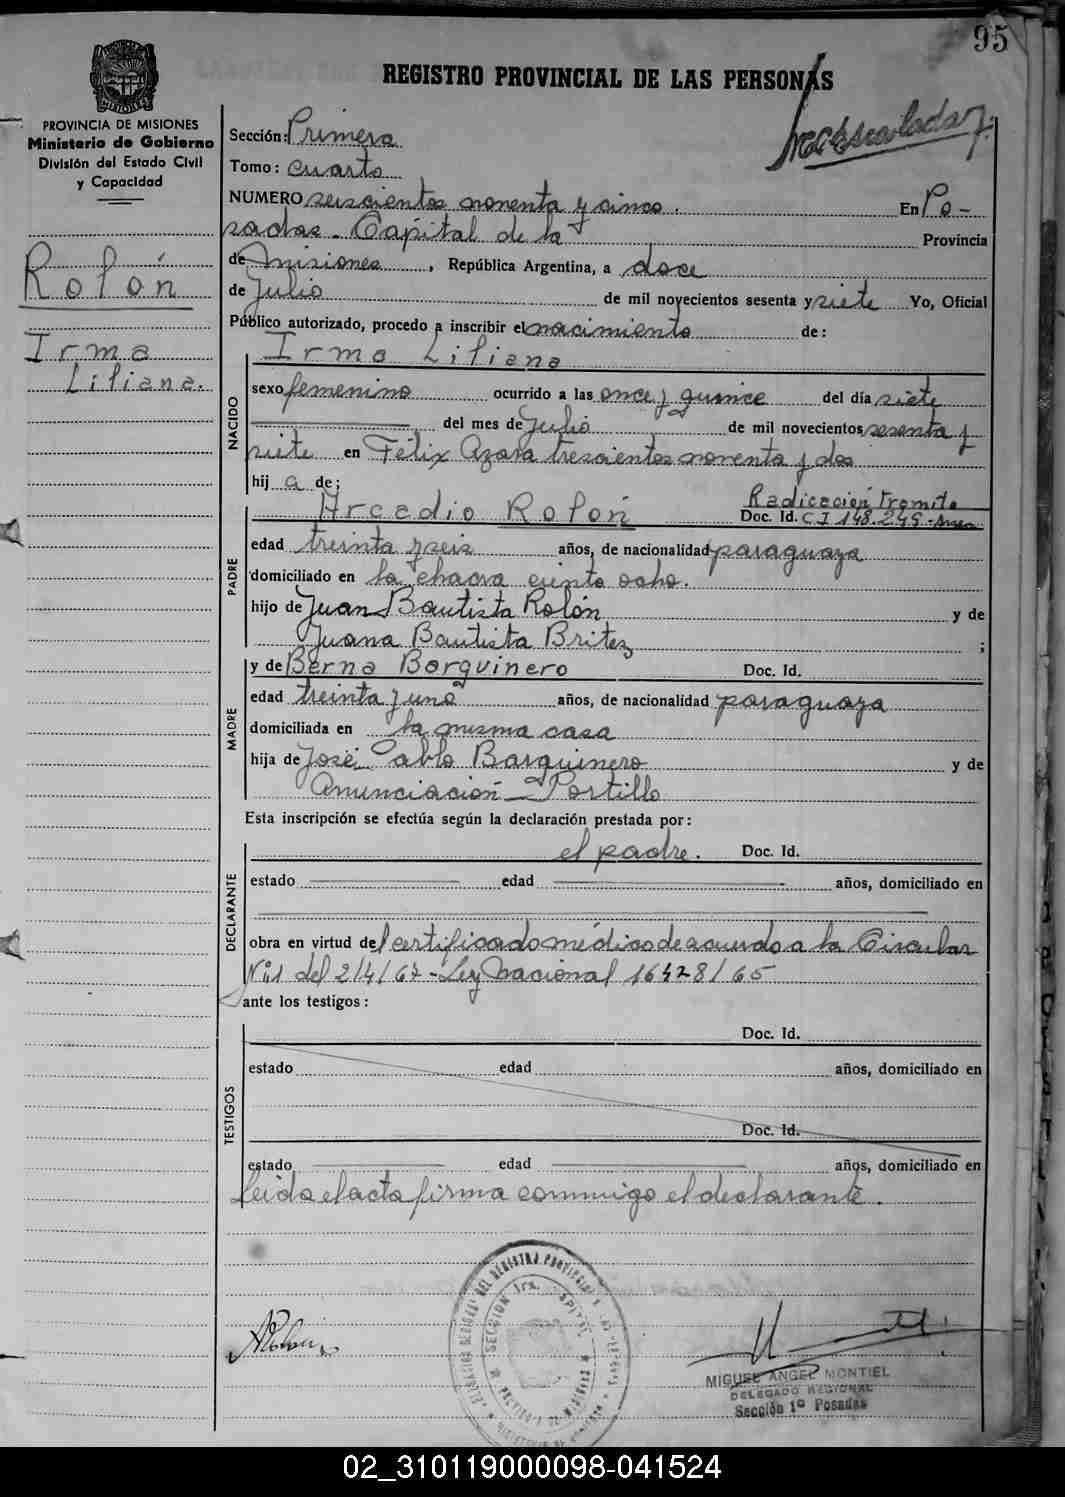 95
REGISTRO PROVINCIAL DE LAS PERSONAS
PROVINCIA DE MISIONES
Ministerio de Gobierno
División del Estado Civil
y Capacidad
Rolón
Irma
Liliana.
Sección: Primera
Tomo: cuarto
NUMERO seiscientos noventa y cinco. En Po-
sadas - Capital de la Provincia
de Misiones, República Argentina, a doce
de Julio de mil novecientos sesenta y siete Yo, Oficial
Público autorizado, procedo a inscribir el nacimiento de:
NACIDO
Irma Liliana
sexo femenino ocurrido a las once y quince del día siete
del mes de Julio de mil novecientos sesenta y
siete en Félix Azara trescientos noventa y dos
hij a de:
PADRE
Radicación Tramite
Arcadio Rolón Doc. Id. C I 148.245
edad treinta y seis años, de nacionalidad paraguaya
domiciliado en la chacra ciento ocho.
hijo de Juan Bautista Rolón y de
Juana Bautista Britez ;
MADRE
y de Berna Barquinero Doc. Id.
edad treinta y uno años, de nacionalidad paraguaya
domiciliada en la misma casa
hija de José Pablo Barquinero y de
Anunciación Portillo
Esta inscripción se efectúa según la declaración prestada por:
DECLARANTE
el padre. Doc. Id.
estado edad años, domiciliado en
obra en virtud del certificado médico de acuerdo a la Circular
Nº1 del 2/4/67 - Ley Nacional 16478/65
ante los testigos:
TESTIGOS
Doc. Id.
estado edad años, domiciliado en
Doc. Id.
estado edad años, domiciliado en
Leida el acta firma conmigo el declarante.
ARolon
MIGUEL ANGEL MONTIEL
DELEGADO REGIONAL
Sección 1º Posadas
02_310119000098-041524